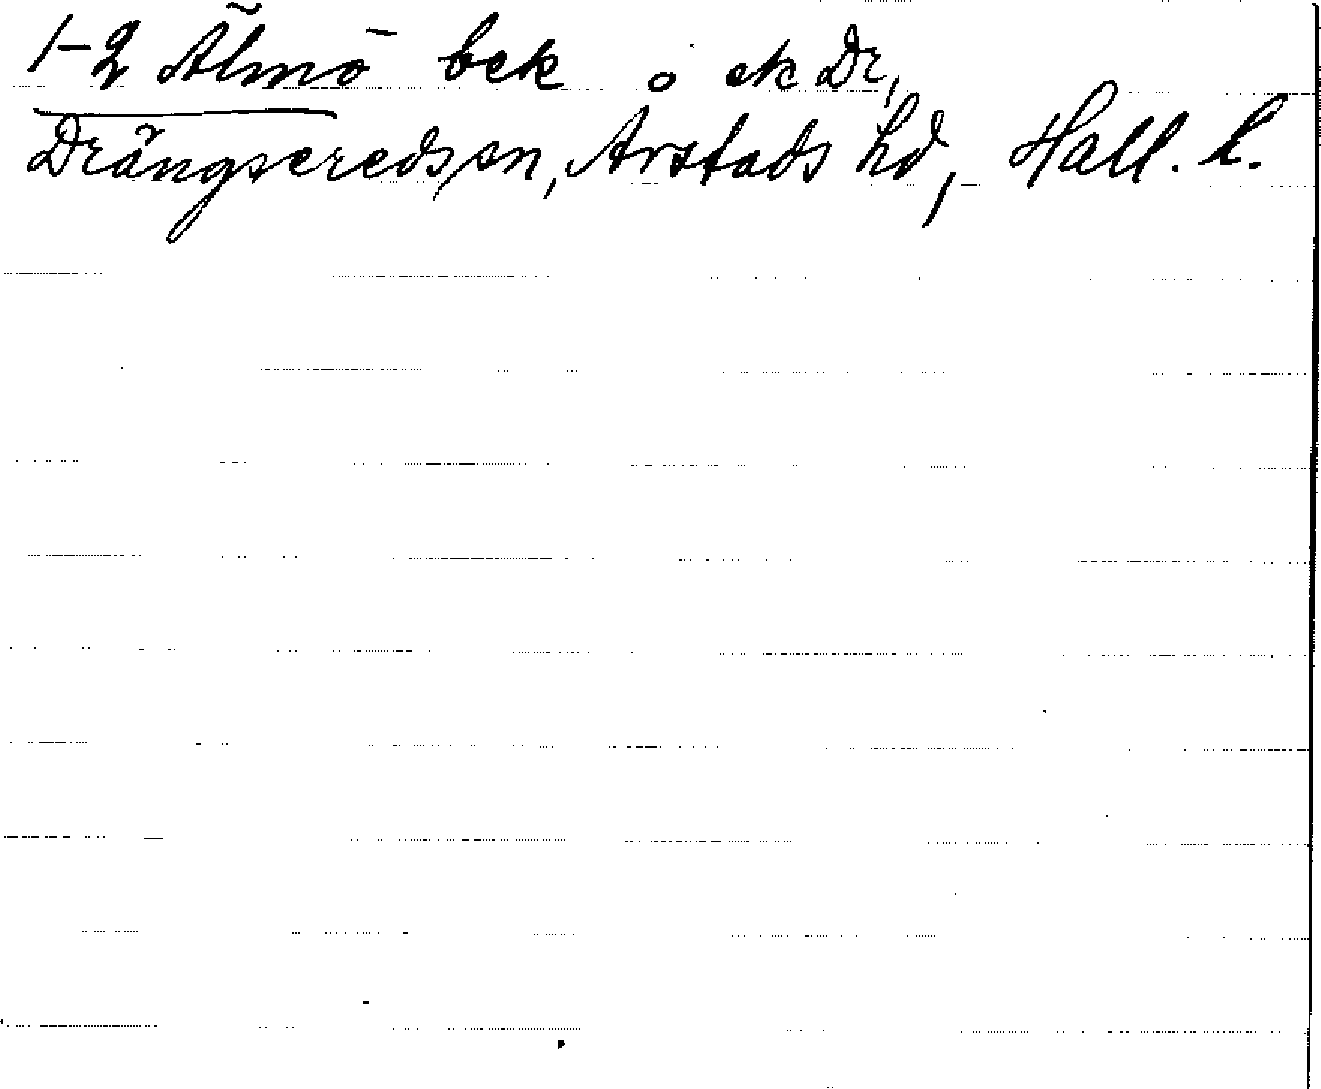 1-2 Älmö bek o ek Dr,
Drängsereds sn, Årstads hd, Hall. l.